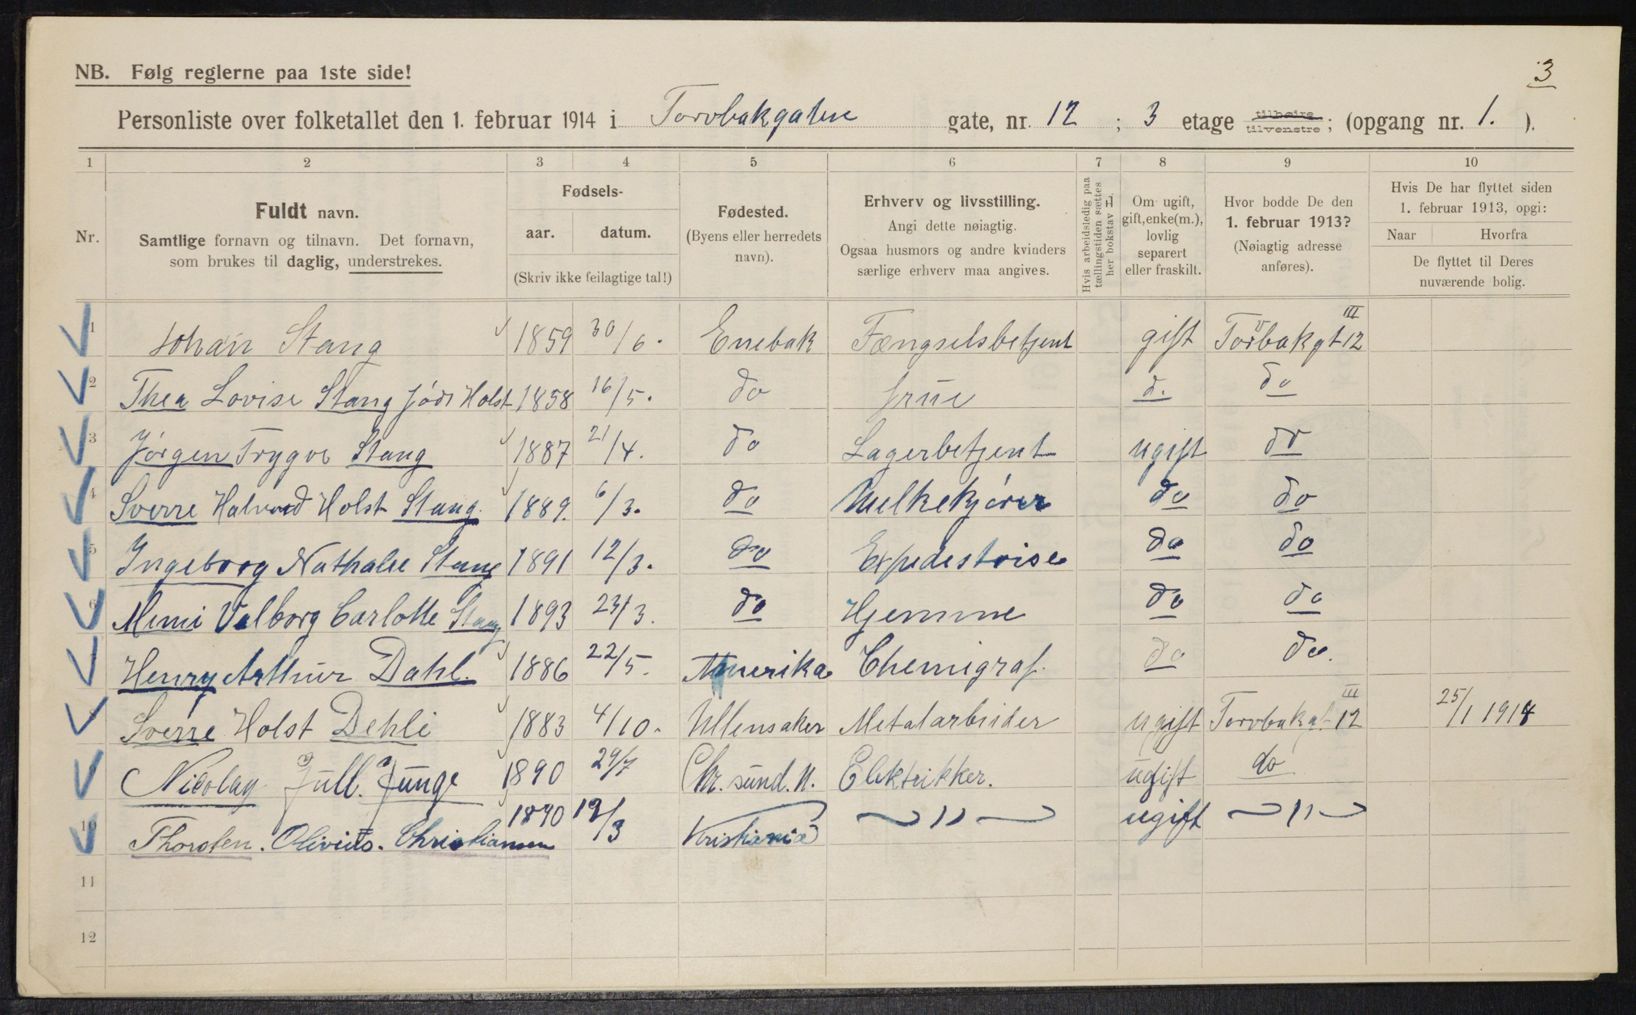 3
NB. Følg reglerne paa 1ste side!
Personliste over folketallet den 1. februar 1914 i Torvbakgaten gate, nr. 12 ; 3 etage tilhøire tilvenstre; (opgang nr. 1. ).
1 2 3 4 5 6 7 8 9 10
Nr.
Fuldt navn.
Samtlige fornavn og tilnavn. Det fornavn,
som brukes til daglig, understrekes.
Fødsels-
aar. datum.
(Skriv ikke feilagtige tal!)
Fødested.
(Byens eller herredets
navn).
Erhverv og livsstilling.
Angi dette nøiagtig.
Ogsaa husmors og andre kvinders
særlige erhverv maa angives.
Hvis arbeidsledig paa
tællingstiden sættes
her bokstav L.
Om ugift,
gift, enke(m.),
lovlig
separert
eller fraskilt.
Hvor bodde De den
1. februar 1913?
(Nøiagtig adresse
anføres).
Hvis De har flyttet siden
1. februar 1913, opgi:
Naar Hvorfra
De flyttet til Deres
nuværende bolig.
1 Johan Stang 1859 30/6. Enebak Fængselsbetjent gift Torvbakgt 12 III
2 Thea Lovise Stang født Holst 1858 16/5. do frue d. do
3 Jørgen Trygve Stang 1887 21/4. do Lagerbetjent ugift do
4 Sverre Halvord Holst Stang. 1889. 6/3. do Melkekjører do do
5 Ingeborg Nathalie Stang 1891 12/3. do Expeditrise do do
6 Mimi Valborg Carlotte Stang 1893 23/3. do Hjemme do do
Henry Arthur Dahl. 1886 22/5. Amerika Chemigraf. do do.
Sverre Holst Dehli 1883 4/10. Ullensaker Metalarbeider ugift Torvbakgt. 12 III 25/1 1914
Nicolay Jull. Junge 1890 29/7 Chr. sund. N. Elektrikker. ugift do
1 Thorsten. Olivius. Christiansen 1890 19/3 Kristiania ~ " ~ ugift ~ " ~
11
12